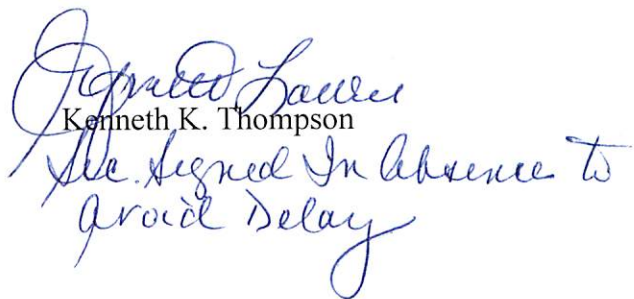 Kenneth K. Thompson
Sec. Signed In Absence to
avoid Delay